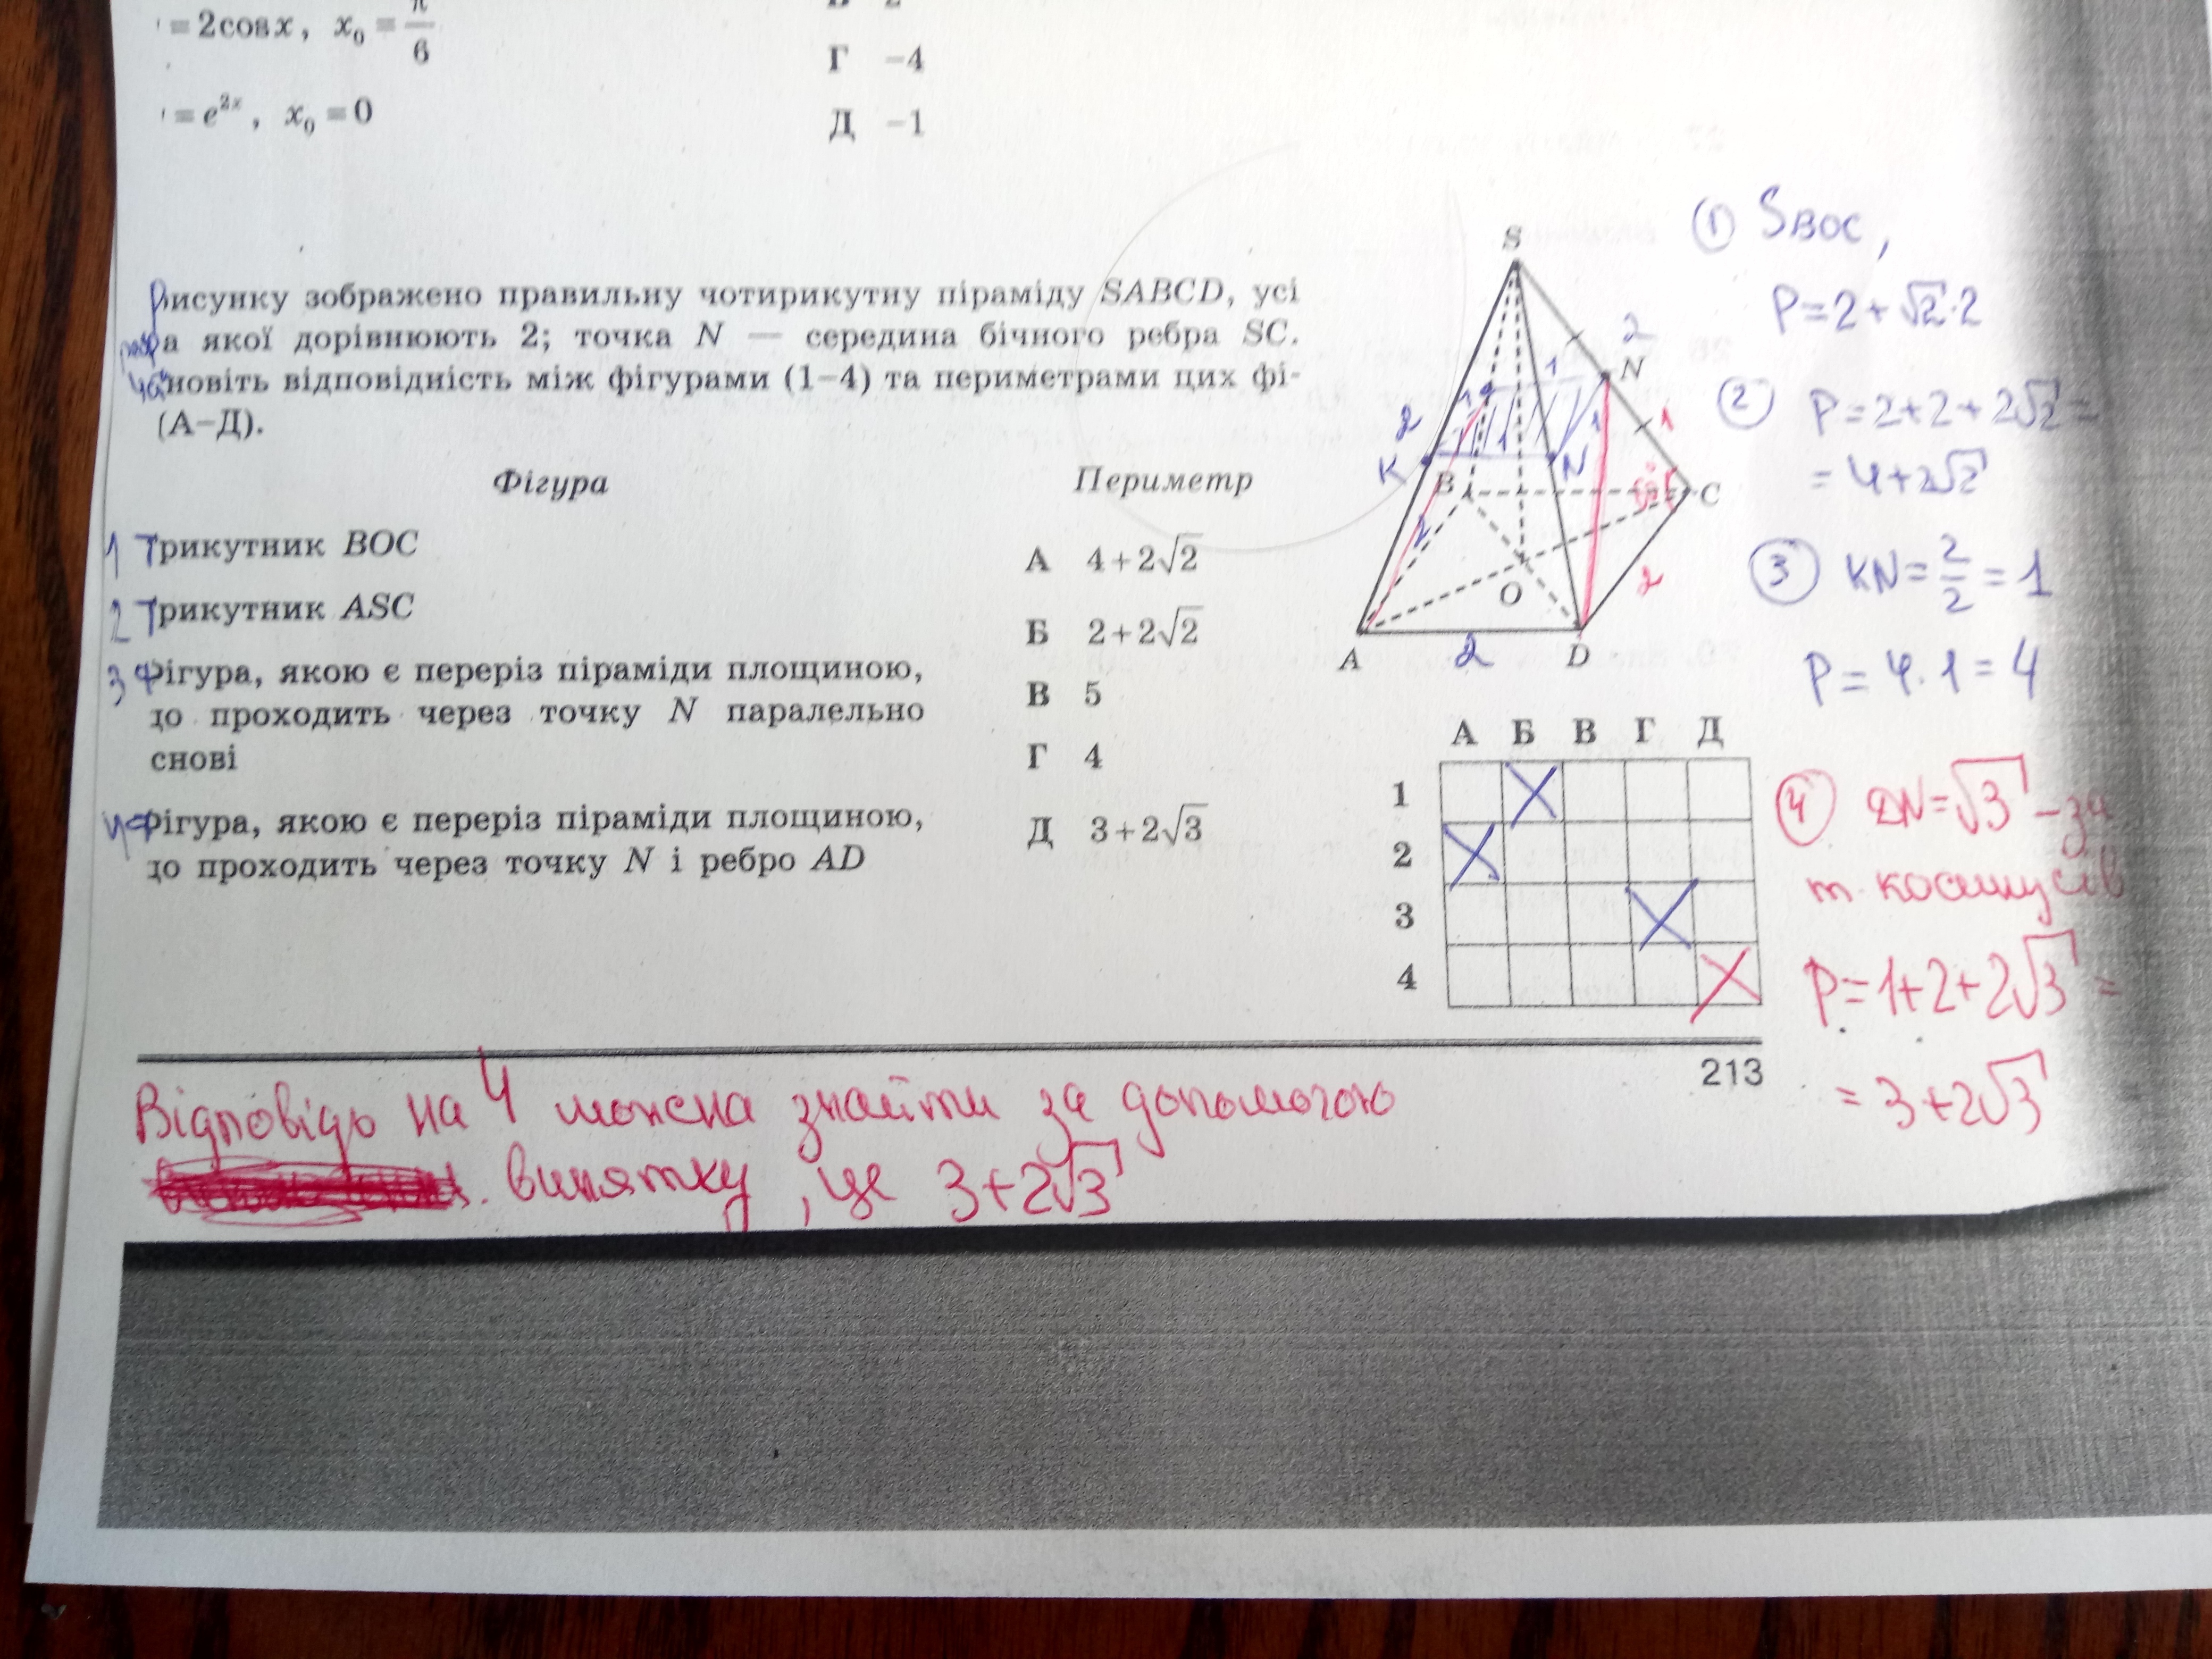 = 2cos x, x₀ = π/6
= e²ˣ, x₀ = 0
Г −4
Д −1
Рисунку зображено правильну чотирикутну піраміду SABCD, усі
ра якої дорівнюють 2; точка N — середина бічного ребра SC.
новіть відповідність між фігурами (1–4) та периметрами цих фі-
(А–Д).
Фігура
Периметр
1 Трикутник BOC
2 Трикутник ASC
3 Фігура, якою є переріз піраміди площиною,
що проходить через точку N паралельно
снові
4 Фігура, якою є переріз піраміди площиною,
що проходить через точку N і ребро AD
А 4+2√2
Б 2+2√2
В 5
Г 4
Д 3+2√3
S
N
K
N
B
C
O
A
D
2
2
2
2
2
1
1
1
1
1
60°
А Б В Г Д
1
2
3
4
① SBOC,
P=2+√2·2
② P=2+2+2√2=
=4+2√2
③ KN=2/2=1
P=4·1=4
④ DN=√3 – за
т. косинусів
P=1+2+2√3=
=3+2√3
213
Відповідь на 4 можна знайти за допомогою
винятку, це 3+2√3